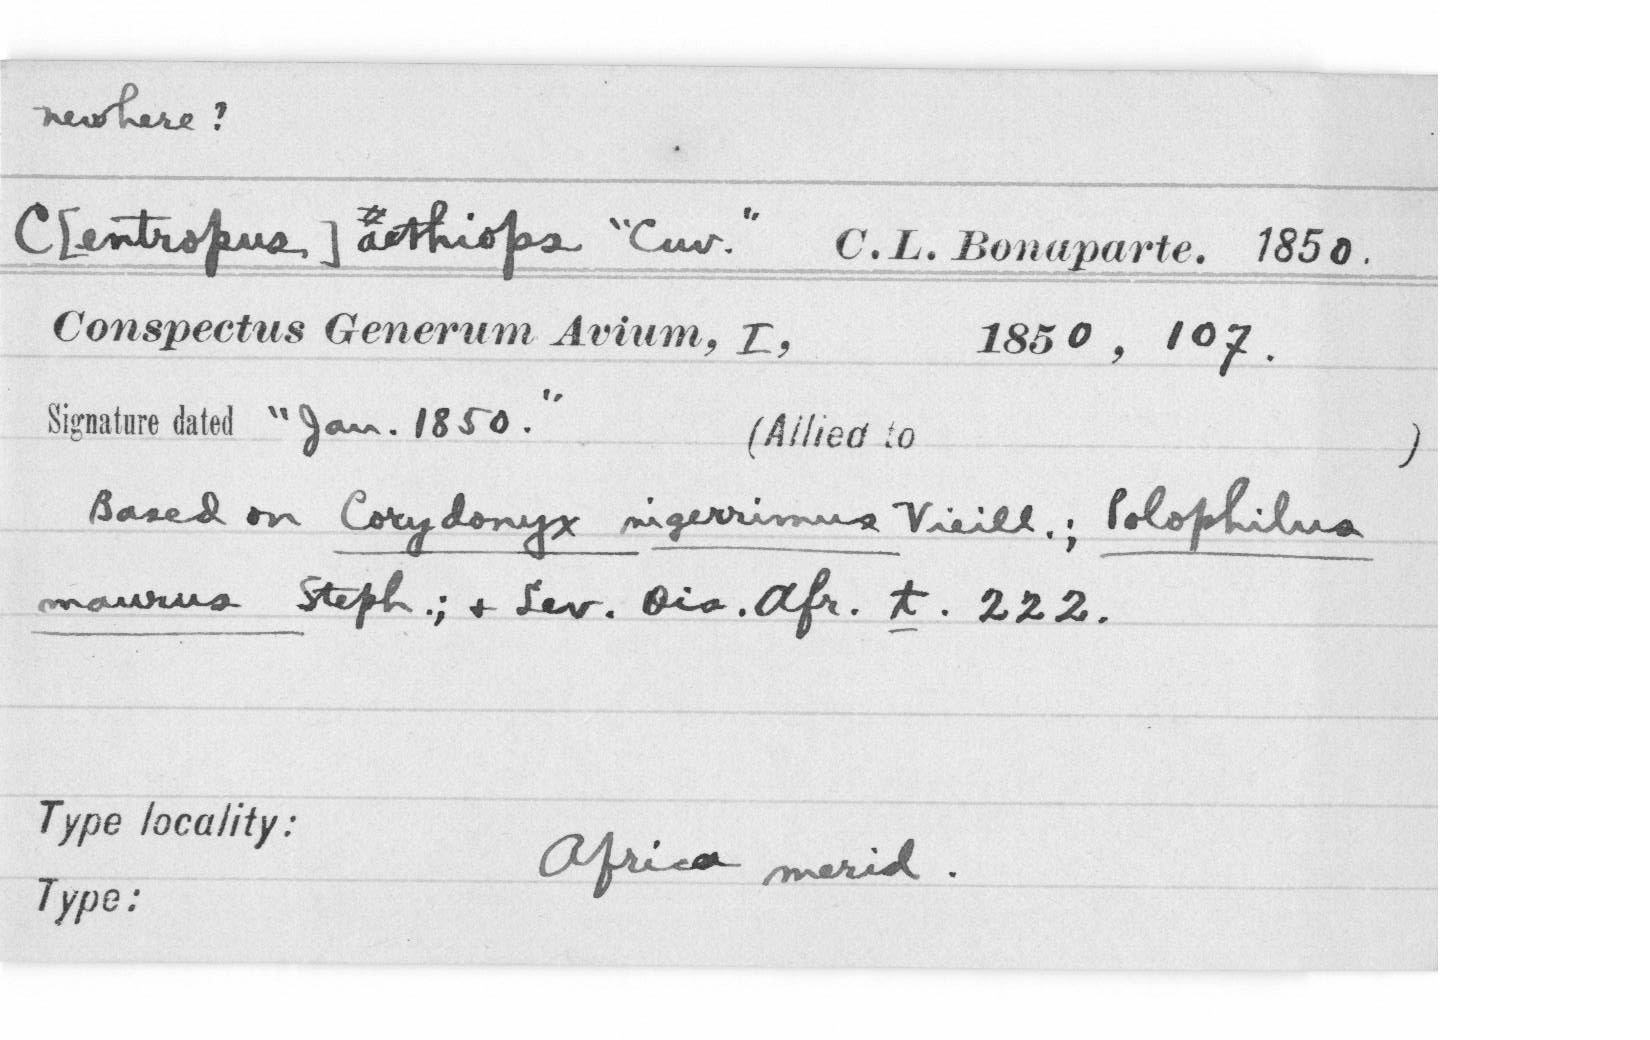 new here ?
C[entropus] aethiops "Cuv." C. L. Bonaparte. 1850.
Conspectus Generum Avium, I, 1850, 107.
Signature dated "Jan. 1850." (Allied to )
Based on Corydonyx nigerrimus Vieill.; Polophilus
maurus Steph.; + Lev. Ois. Afr. t. 222.
Type locality:
Africa merid.
Type: